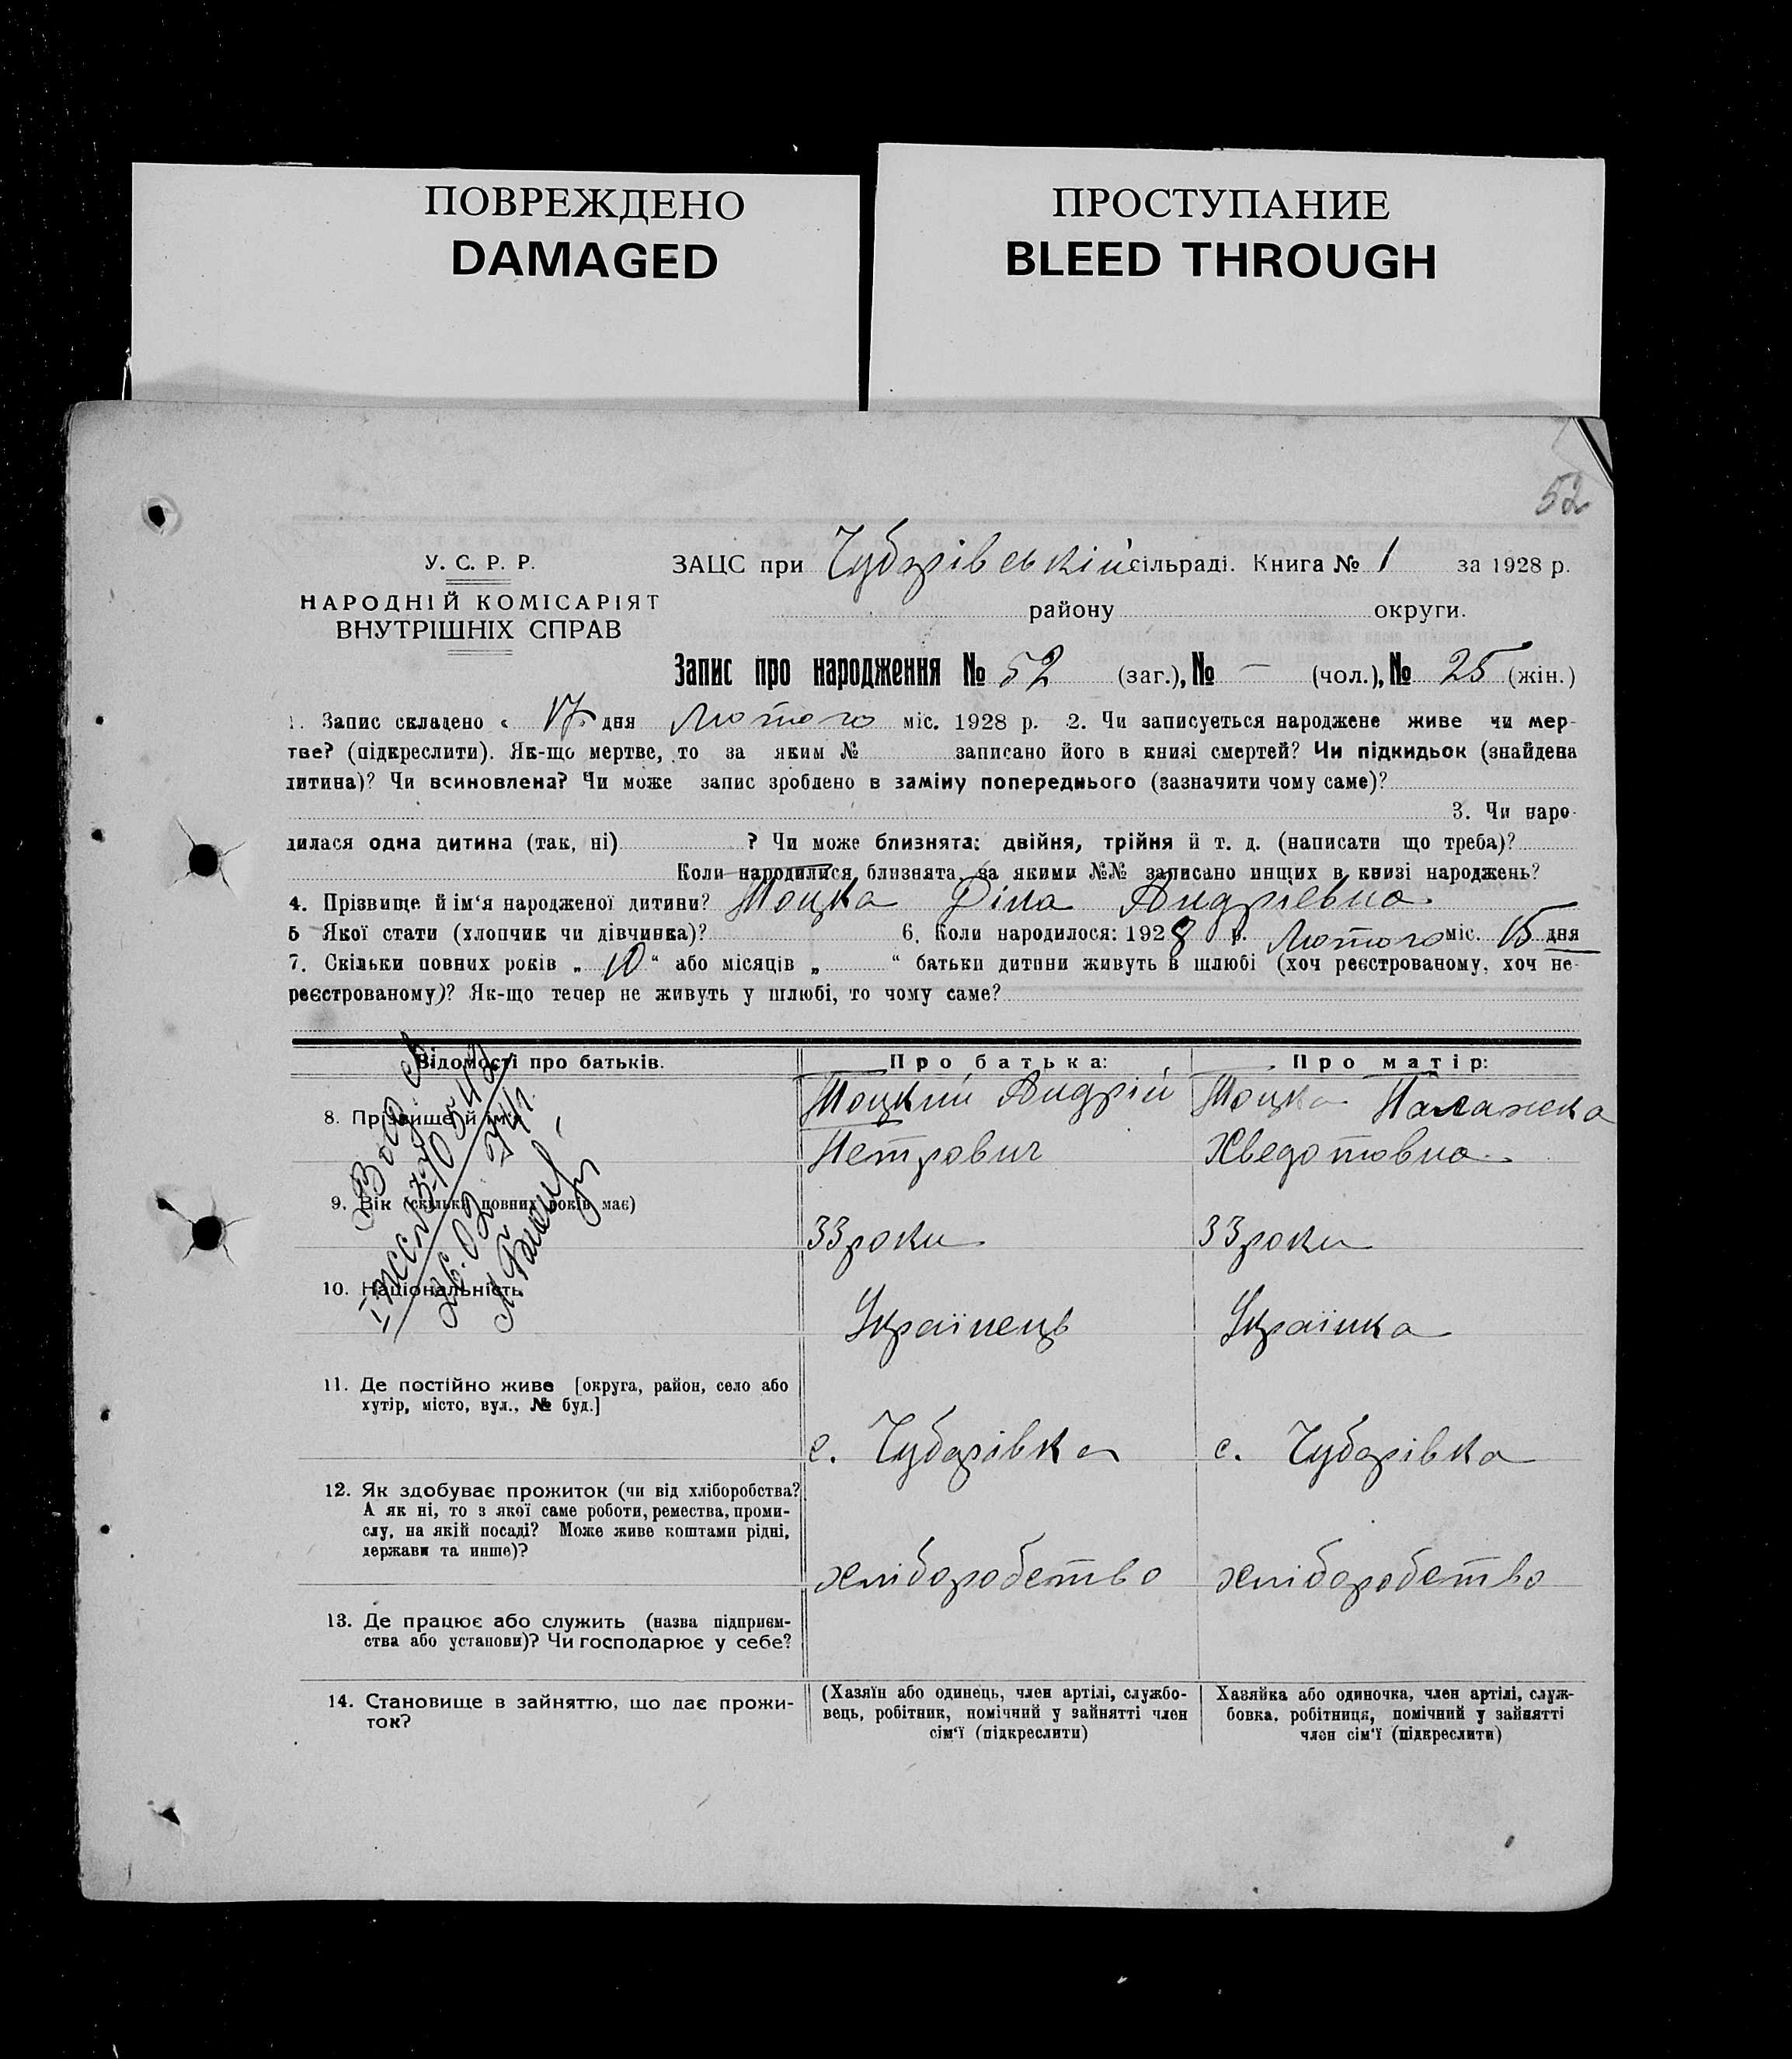 ПОВРЕЖДЕНО
DAMAGED
ПРОСТУПАНИЕ
BLEED THROUGH
52
У. С. Р. Р.
НАРОДНІЙ КОМІСАРІЯТ
ВНУТРІШНІХ СПРАВ
ЗАЦС при Чубарівській сільраді. Книга № 1 за 1928 р.
району округи.
Запис про народження № 52 (заг.), № — (чол.), № 25 (жін.)
1. Запис складено « 17 » дня Лютого міс. 1928 р. 2. Чи записується народжене живе чи мер-
тве? (підкреслити). Як-що мертве, то за яким № записано його в книзі смертей? Чи підкидьок (знайдена
дитина)? Чи всиновлена? Чи може запис зроблено в заміну попереднього (зазначити чому саме)?
3. Чи наро-
дилася одна дитина (так, ні) ? Чи може близнята: двійня, трійня й т. д. (написати що треба)?
Коли народилися близнята, за якими №№ записано инщих в книзі народжень?
4. Прізвище й ім'я народженої дитини? Моцка Андріевна
5 Якої стати (хлопчик чи дівчинка)? 6. Коли народилося: 1928 р. Лютого міс. 15 дня
7. Скільки повних років „ 10 “ або місяців „ “ батьки дитини живуть в шлюбі (хоч реєстрованому, хоч не-
реєстрованому)? Як-що тепер не живуть у шлюбі, то чому саме?
Відомості про батьків. Про батька: Про матір:
8. Прізвище й ім'я Моцкий Андрій Моцка Палажка
Петрович Хведотовна
9. Вік (скільки повних років має)
33 роки 33 роки
10. Національність
Українець Українка
11. Де постійно живе [округа, район, село або
хутір, місто, вул., № буд.]
с. Чубарівка с. Чубарівка
12. Як здобуває прожиток (чи від хліборобства?
А як ні, то з якої саме роботи, ремества, проми-
слу, на якій посаді? Може живе коштами рідні,
держави та инше)?
хліборобство хліборобство
13. Де працює або служить (назва підприєм-
ства або установи)? Чи господарює у себе?
14. Становище в зайняттю, що дає прожи-
ток?
(Хазяїн або одинець, член артілі, службо-
вець, робітник, помічний у зайнятті член
сім'ї (підкреслити)
Хазяйка або одиночка, член артілі, служ-
бовка, робітниця, помічний у зайнятті
член сім'ї (підкреслити)